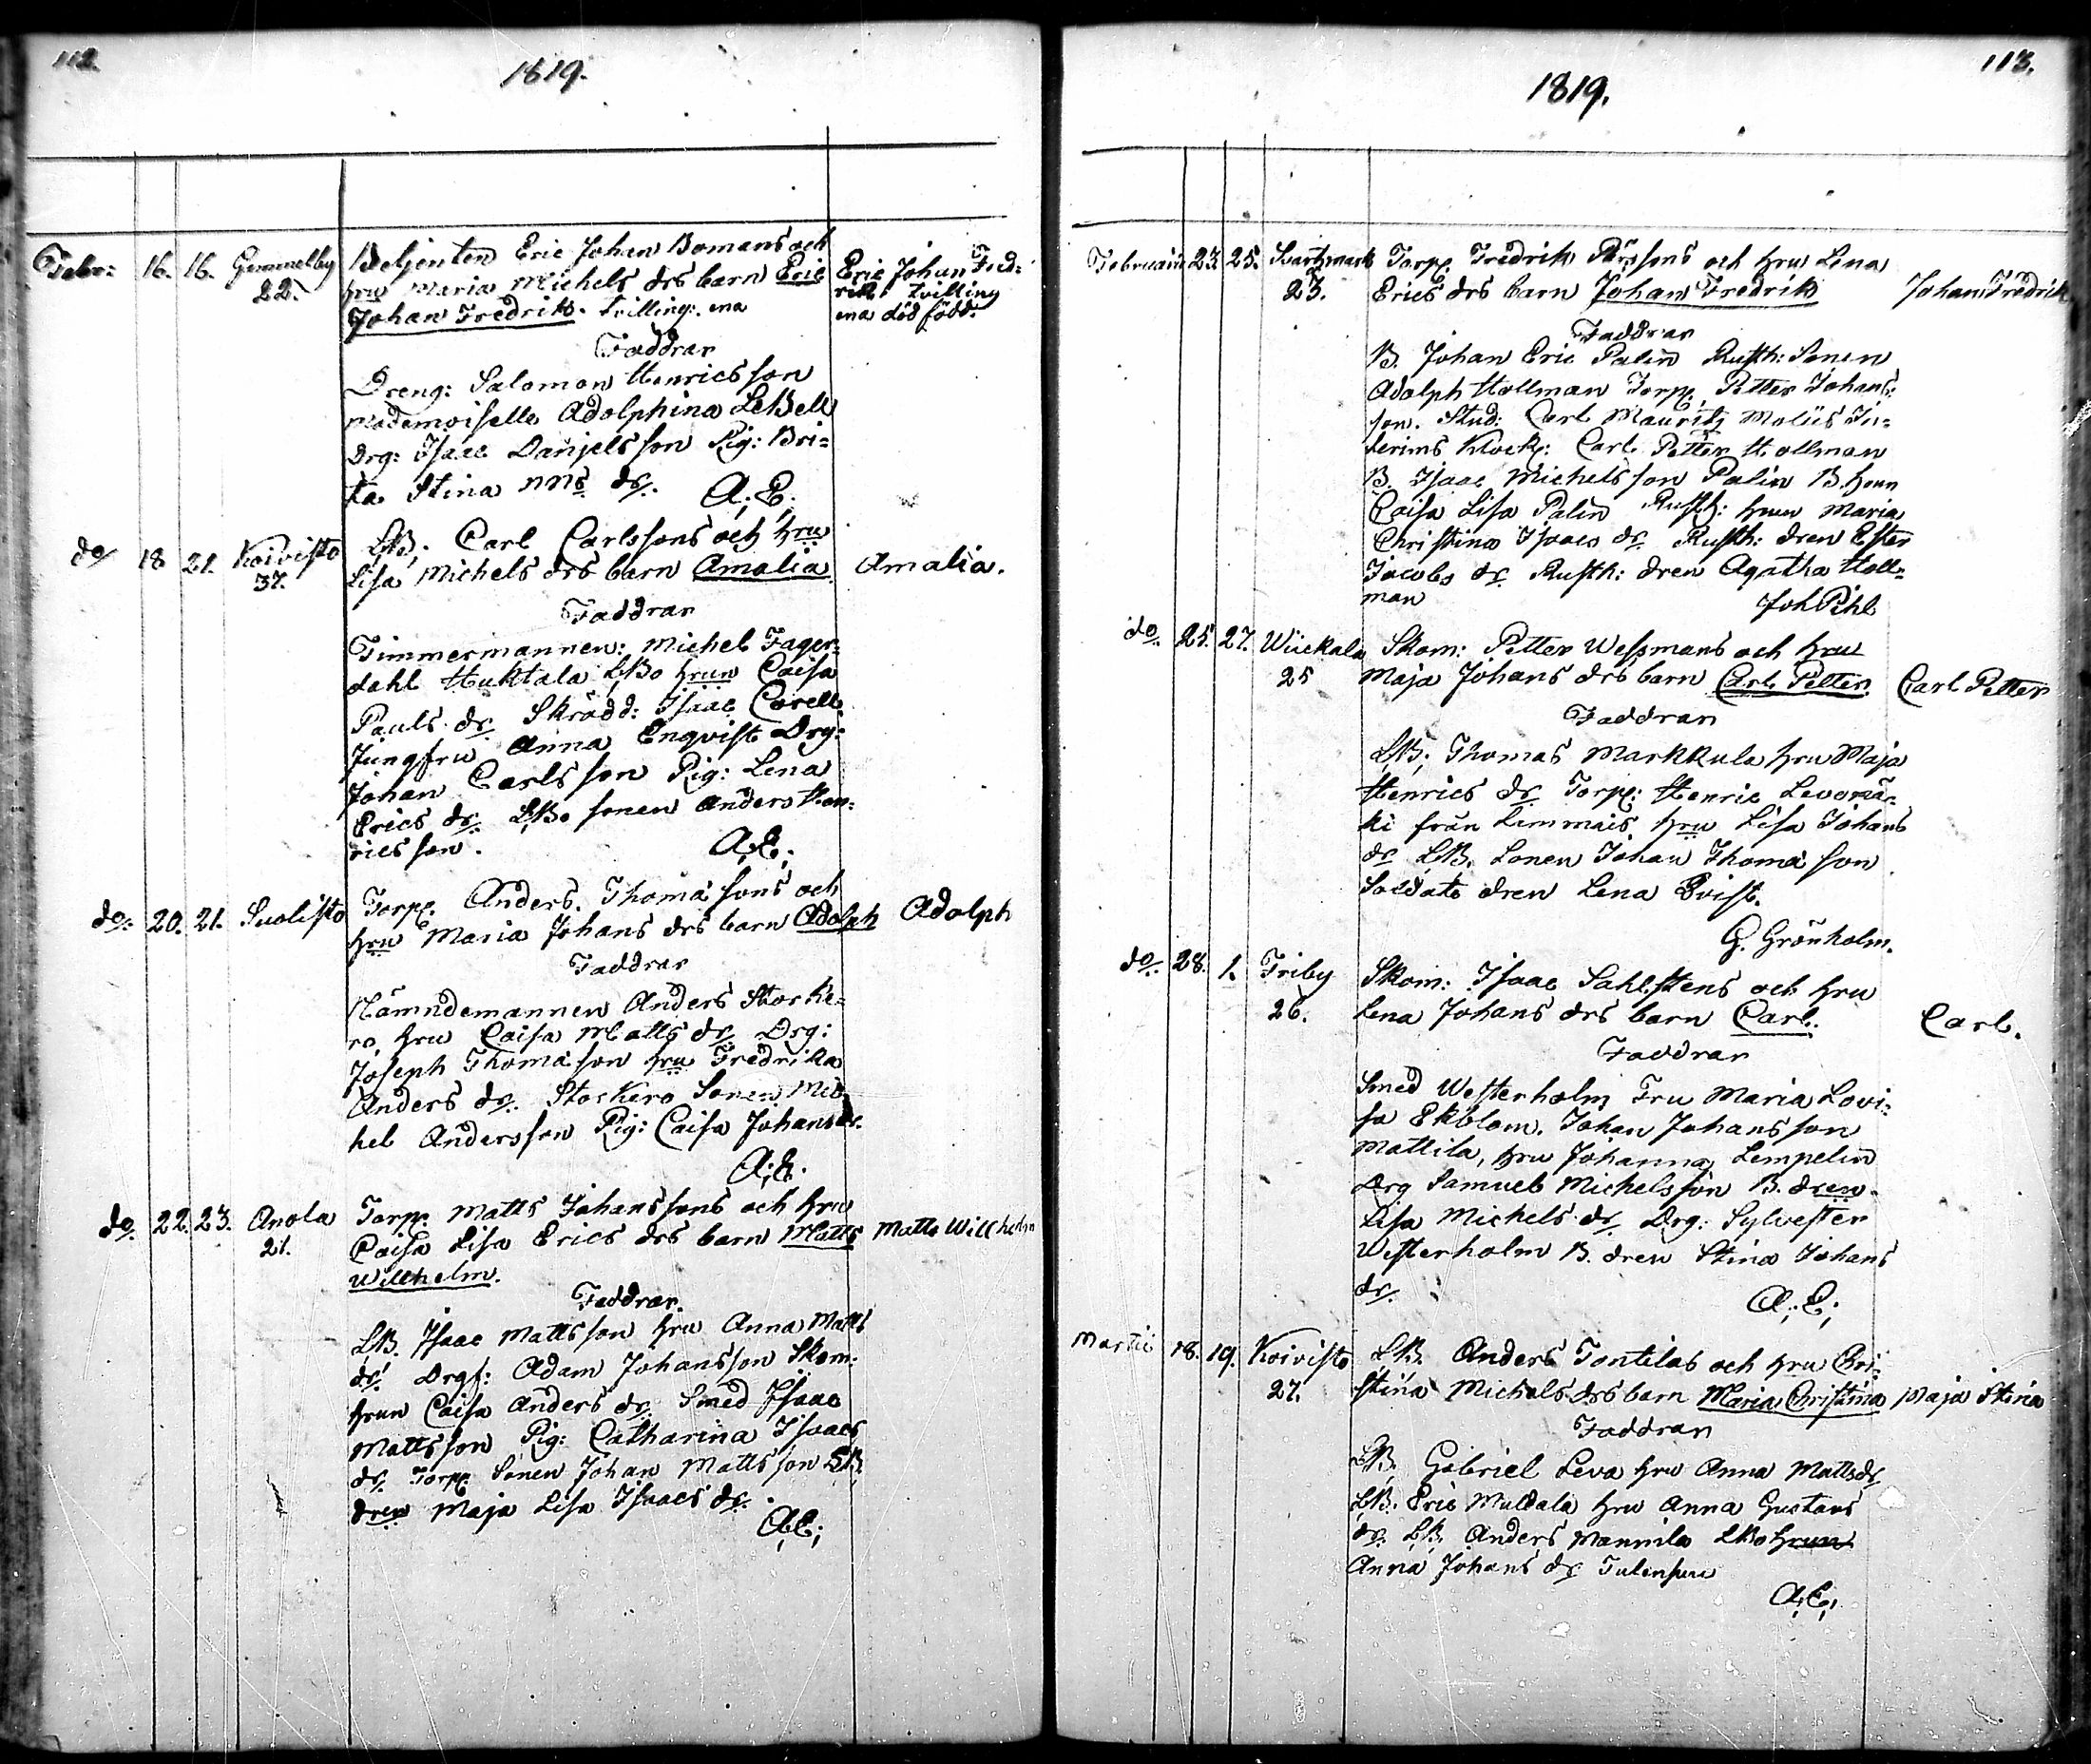 112.
1819.
Febr: 16. 16. Gammelby Betjenten Eric Johan Bomans och Eric Johan Fred-
22. hru Maria Michels drs barn Eric rik tvilling
Johan Fredrik. tvilling. ena ena död född.
Faddrar
Dreng: Salomon Henricsson
Mademoiselle Adolphina LeBell
Drg: Isaac Danjelsson Pig: Bri=
ta Stina dr. A; E;
do 18 21. Koivisto LB; Carl Carlssons och hru
37. Lisa Michels drs barn Amalia Amalia.
Faddrar
Timmermannen: Michel Fager=
dahl Huktala LBo hrun Caisa
Pauls dr. Skrädd: Isaac Corell
Jungfru Anna Enqvist Drg:
Johan Carlsson Pig: Lena
Erics dr. LBo sonen Anders Hen:
ricsson. A;E;
do: 20. 21. Suolisto Torp. Anders Thomasons och
hru Maria Johans drs barn Adolph Adolph
Faddrar
Nämndemannen Anders Storke=
ro, hru Caisa Matts dr. Drg:
Joseph Thomason hru Fredrika
Anders dr. Storkero Sonen Mic=
hel Andersson Pig: Caisa Johansdr.
A;E.
do. 22. 23. Anola Torp. Matts Johanssons och hru
21. Caisa Lisa Erics drs barn Matts Matts Willhelm
Willhelm.
Faddrar.
LB. Isaac Mattsson hru Anna Matts
dr. Drgf: Adam Johansson Skom:
hrun Caisa Anders dr. Smed Isaac
Mattsson Pig: Catharina Isaacs
dr. Torp. Sonen Johan Mattsson LB.
dren Maja Lisa Isaacs dr.
A;E;
113.
1819.
Februarii 23. 25. Svartsmark Torp. Fredrik Pärssons och hru Lena
23. Erics drs barn Johan Fredrik Johan Fredrik
Faddrar
B. Johan Eric Palin Rusth: Sonen
Adolph Hollman Torp. Petter Johans=
son. Stud: Carl Mauritz Moliis In=
terims Klock: Carl Petter Hollman
B. Isaac Michelsson Palin B. hrun
Caisa Lisa Palin Rusth: hrun Maria
Christina Isaacs dr. Rusth: dren Ester
Jacobs dr. Rusth: dren Agatha Holl=
man Joh Pihl
do. 25. 27. Wiickala Skom: Petter Wessmans och hru
25 Maja Johans drs barn Carl Petter. Carl Petter
Faddrar
LB; Thomas Markkula hru Maja
Henrics dr. Torp: Henric Levomä=
ki från Limmais, hru Lisa Johans
dr. LB. Sonen Johan Thomason
Soldats dren Lena Qvist.
G. Grönholm.
do. 28. 1. Friby Skom: Isaac Sahlstens och hru
26. Lena Johans drs barn Carl. Carl.
Faddrar
Smed Westerholm Fru Maria Lovi=
sa Ekblom. Johan Johansson
Mattila, hru Johanna Lempelin
Drg Samuel Michelsson B. dren
Lisa Michels dr. Drg: Sylvester
Westerholm B. dren Stina Johans
dr. A;E;
Martii 18. 19. Koivisto LB. Anders Tontilas och hru Chri=
27. stina Michels drs barn Maria Christina Maja Stina
Faddrar
LB. Gabriel Leva hru Anna Mattsdr
LB. Eric Muldala hru Anna Gustavs
dr. LB. Anders Mannila LBo hrun
Anna Johans dr
A;E;